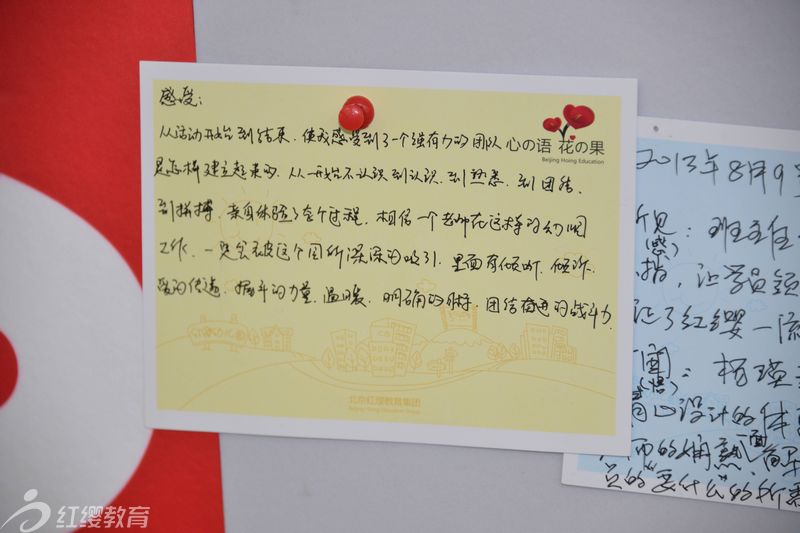 感受：
从活动开始到结束，使我感受到了一个强有力的团队
是怎样建立起来的，从一开始不认识到认识，到熟悉，到团结，
到拼搏，亲自体验了全个过程，相信一个老师在这样的幼儿园
工作，一定会被这个团所深深的吸引，里面有倾听，倾诉，
爱的传递，奋斗的力量，温暖，明确的目标，团结奋进的战斗力
心の语 花の果
Beijing Hoing Education
北京红缨教育集团
Beijing Hoing Education Group
2013年8月9
班主任
让学员
了红缨一流
心设计的体
的娴熟
红缨教育